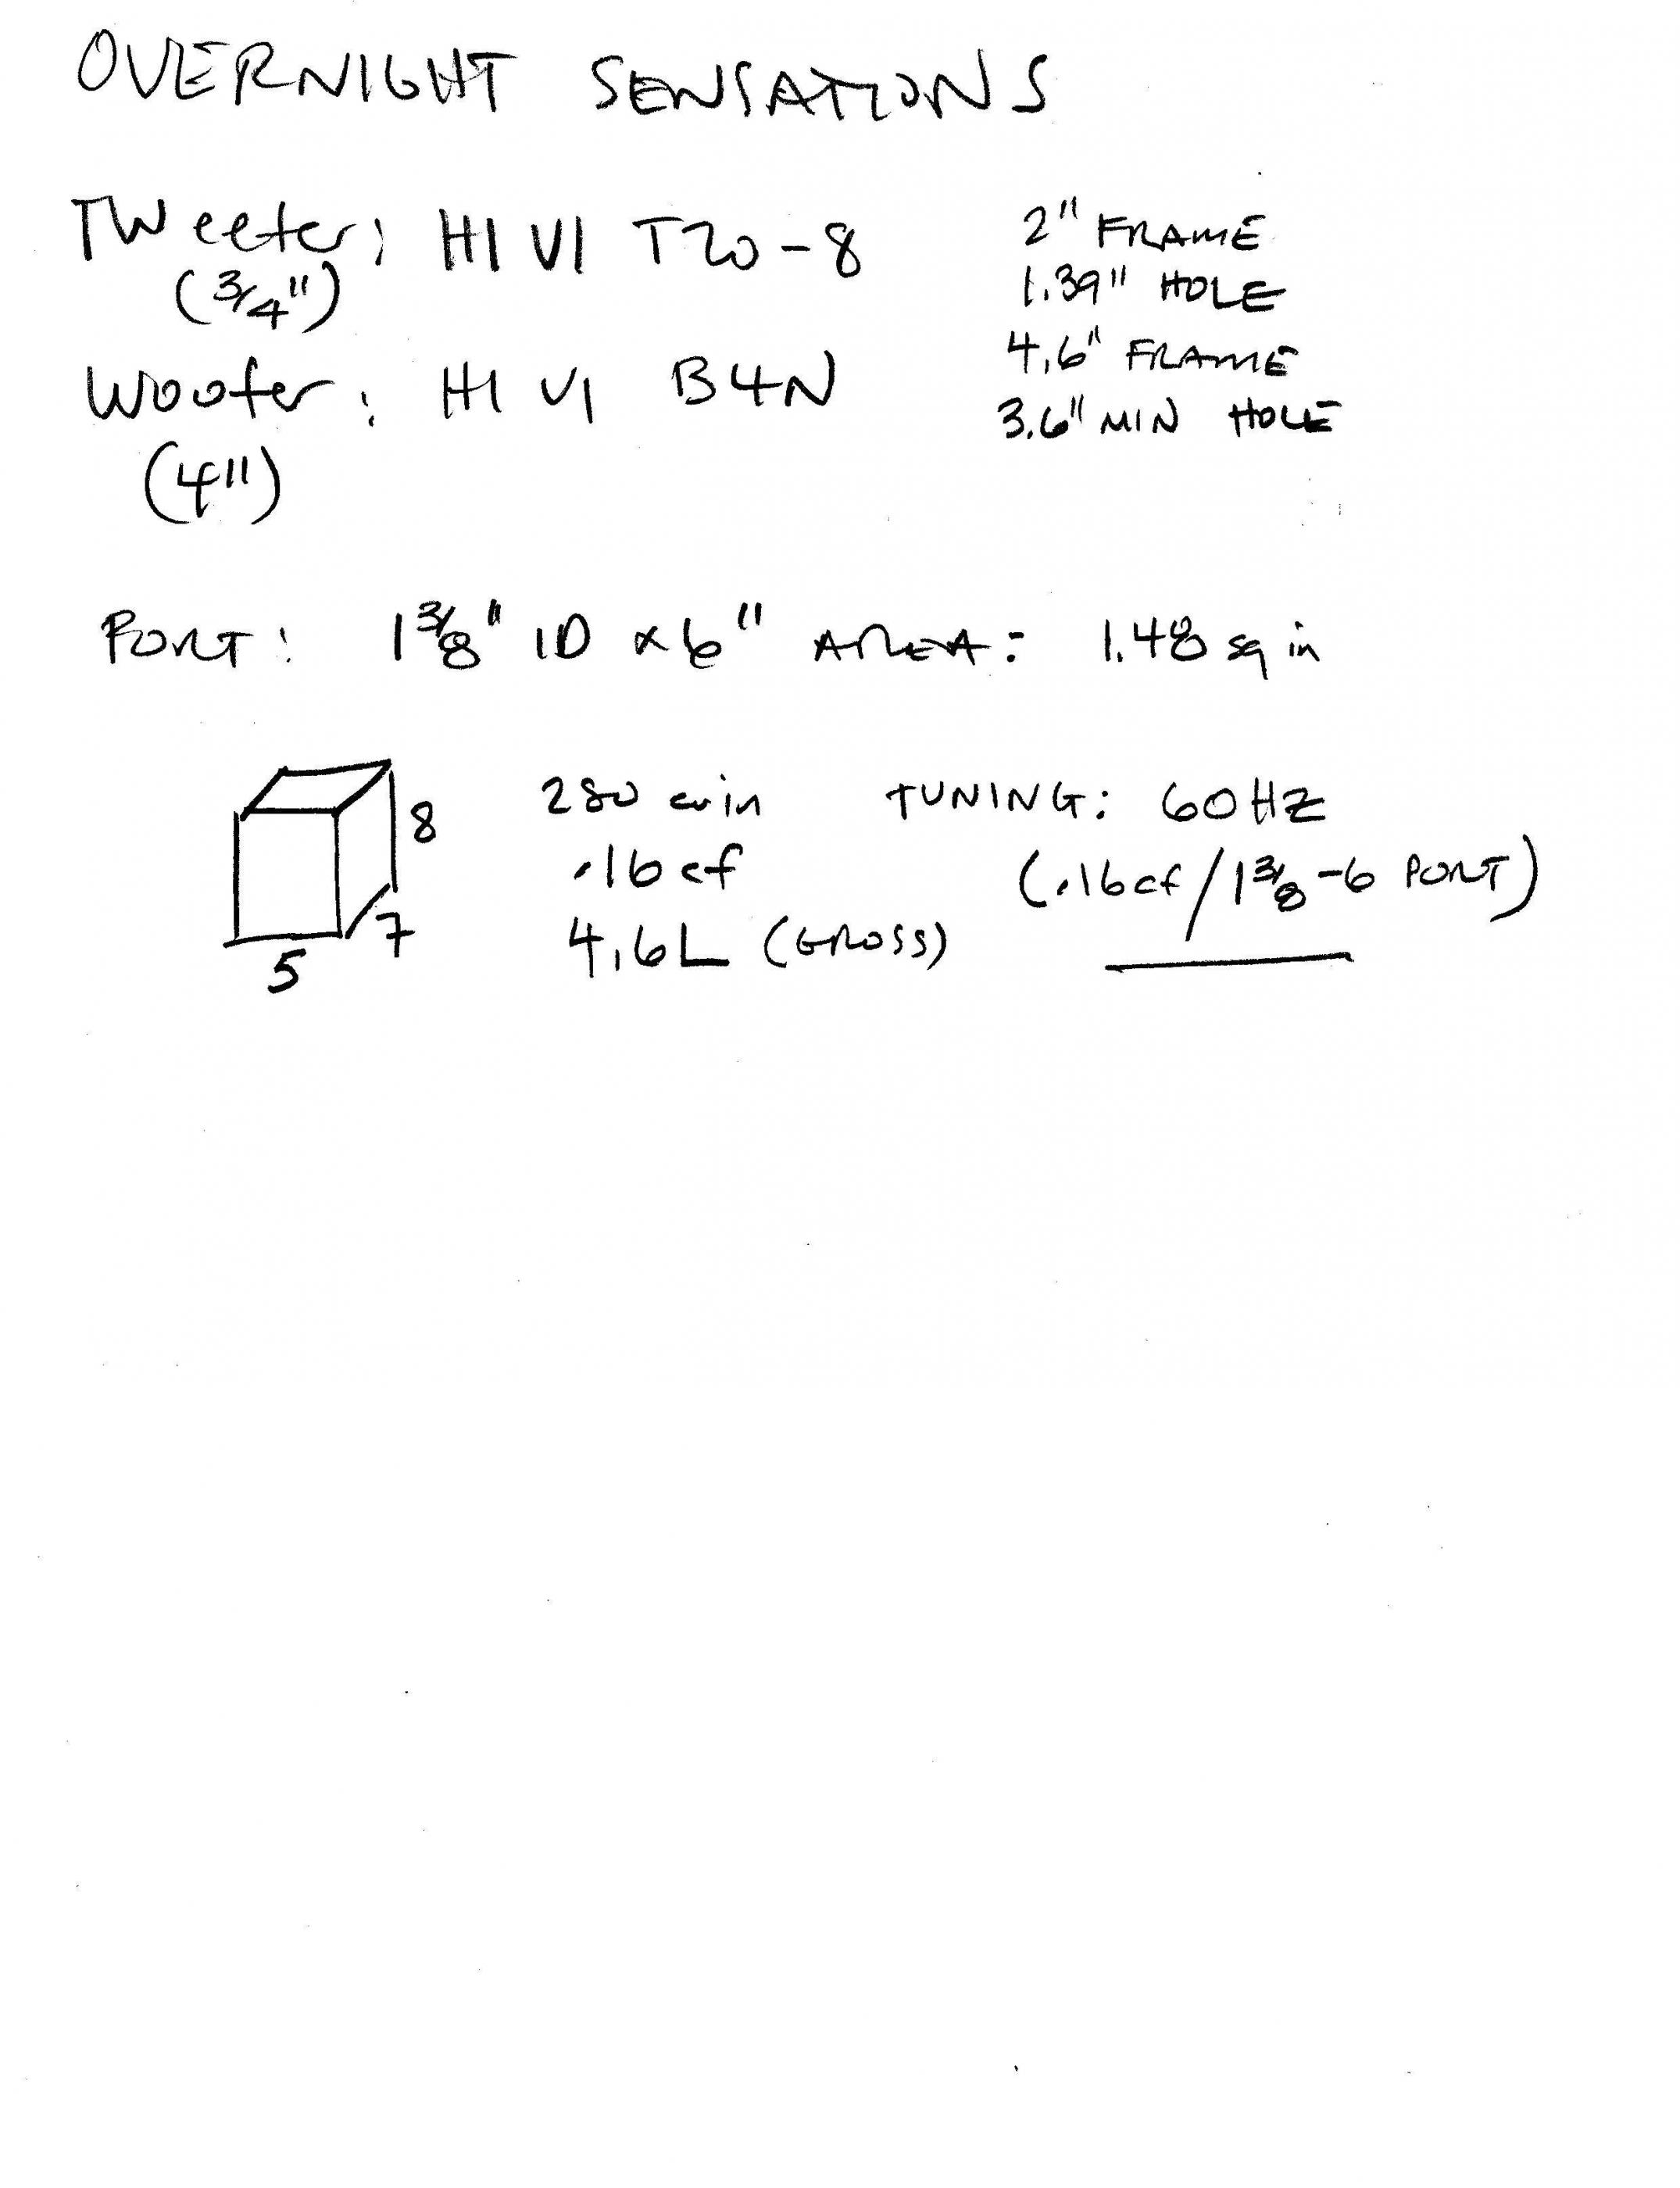 OVERNIGHT SENSATIONS
Tweeter: HI VI T20-8 2" FRAME
(3/4") 1.39" HOLE
4.6" FRAME
Woofer: HI VI B4N 3.6" MIN HOLE
(4")
PORT: 1 3/8" ID x 6" AREA: 1.48 sq in
8
7
5
280 cu in TUNING: 60HZ
.16 cf (.16cf/1 3/8-6 PORT)
4.6L (GROSS)